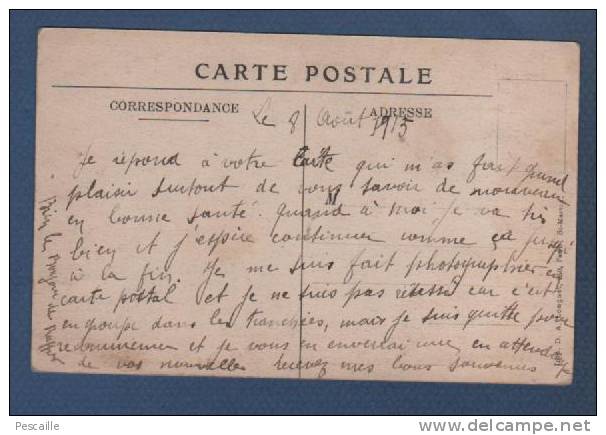 CARTE POSTALE
CORRESPONDANCE
ADRESSE
Le 8 Août 1915
Je répond à votre carte qui m'as fait grand
plaisir surtout de vous savoir de nouveau
en bonne santé. quand à moi je va très
bien et j'espère continuer comme ça jusqu'
à la fin. Je me suis fait photographier en
carte postal et je ne suis pas car c'est
en groupe dans les tranchées, mais je suis quitte pour
et je vous en enverrai une en attendant
de vos nouvelles recevez mes bons souvenirs
Pescaille
www.delcampe.net